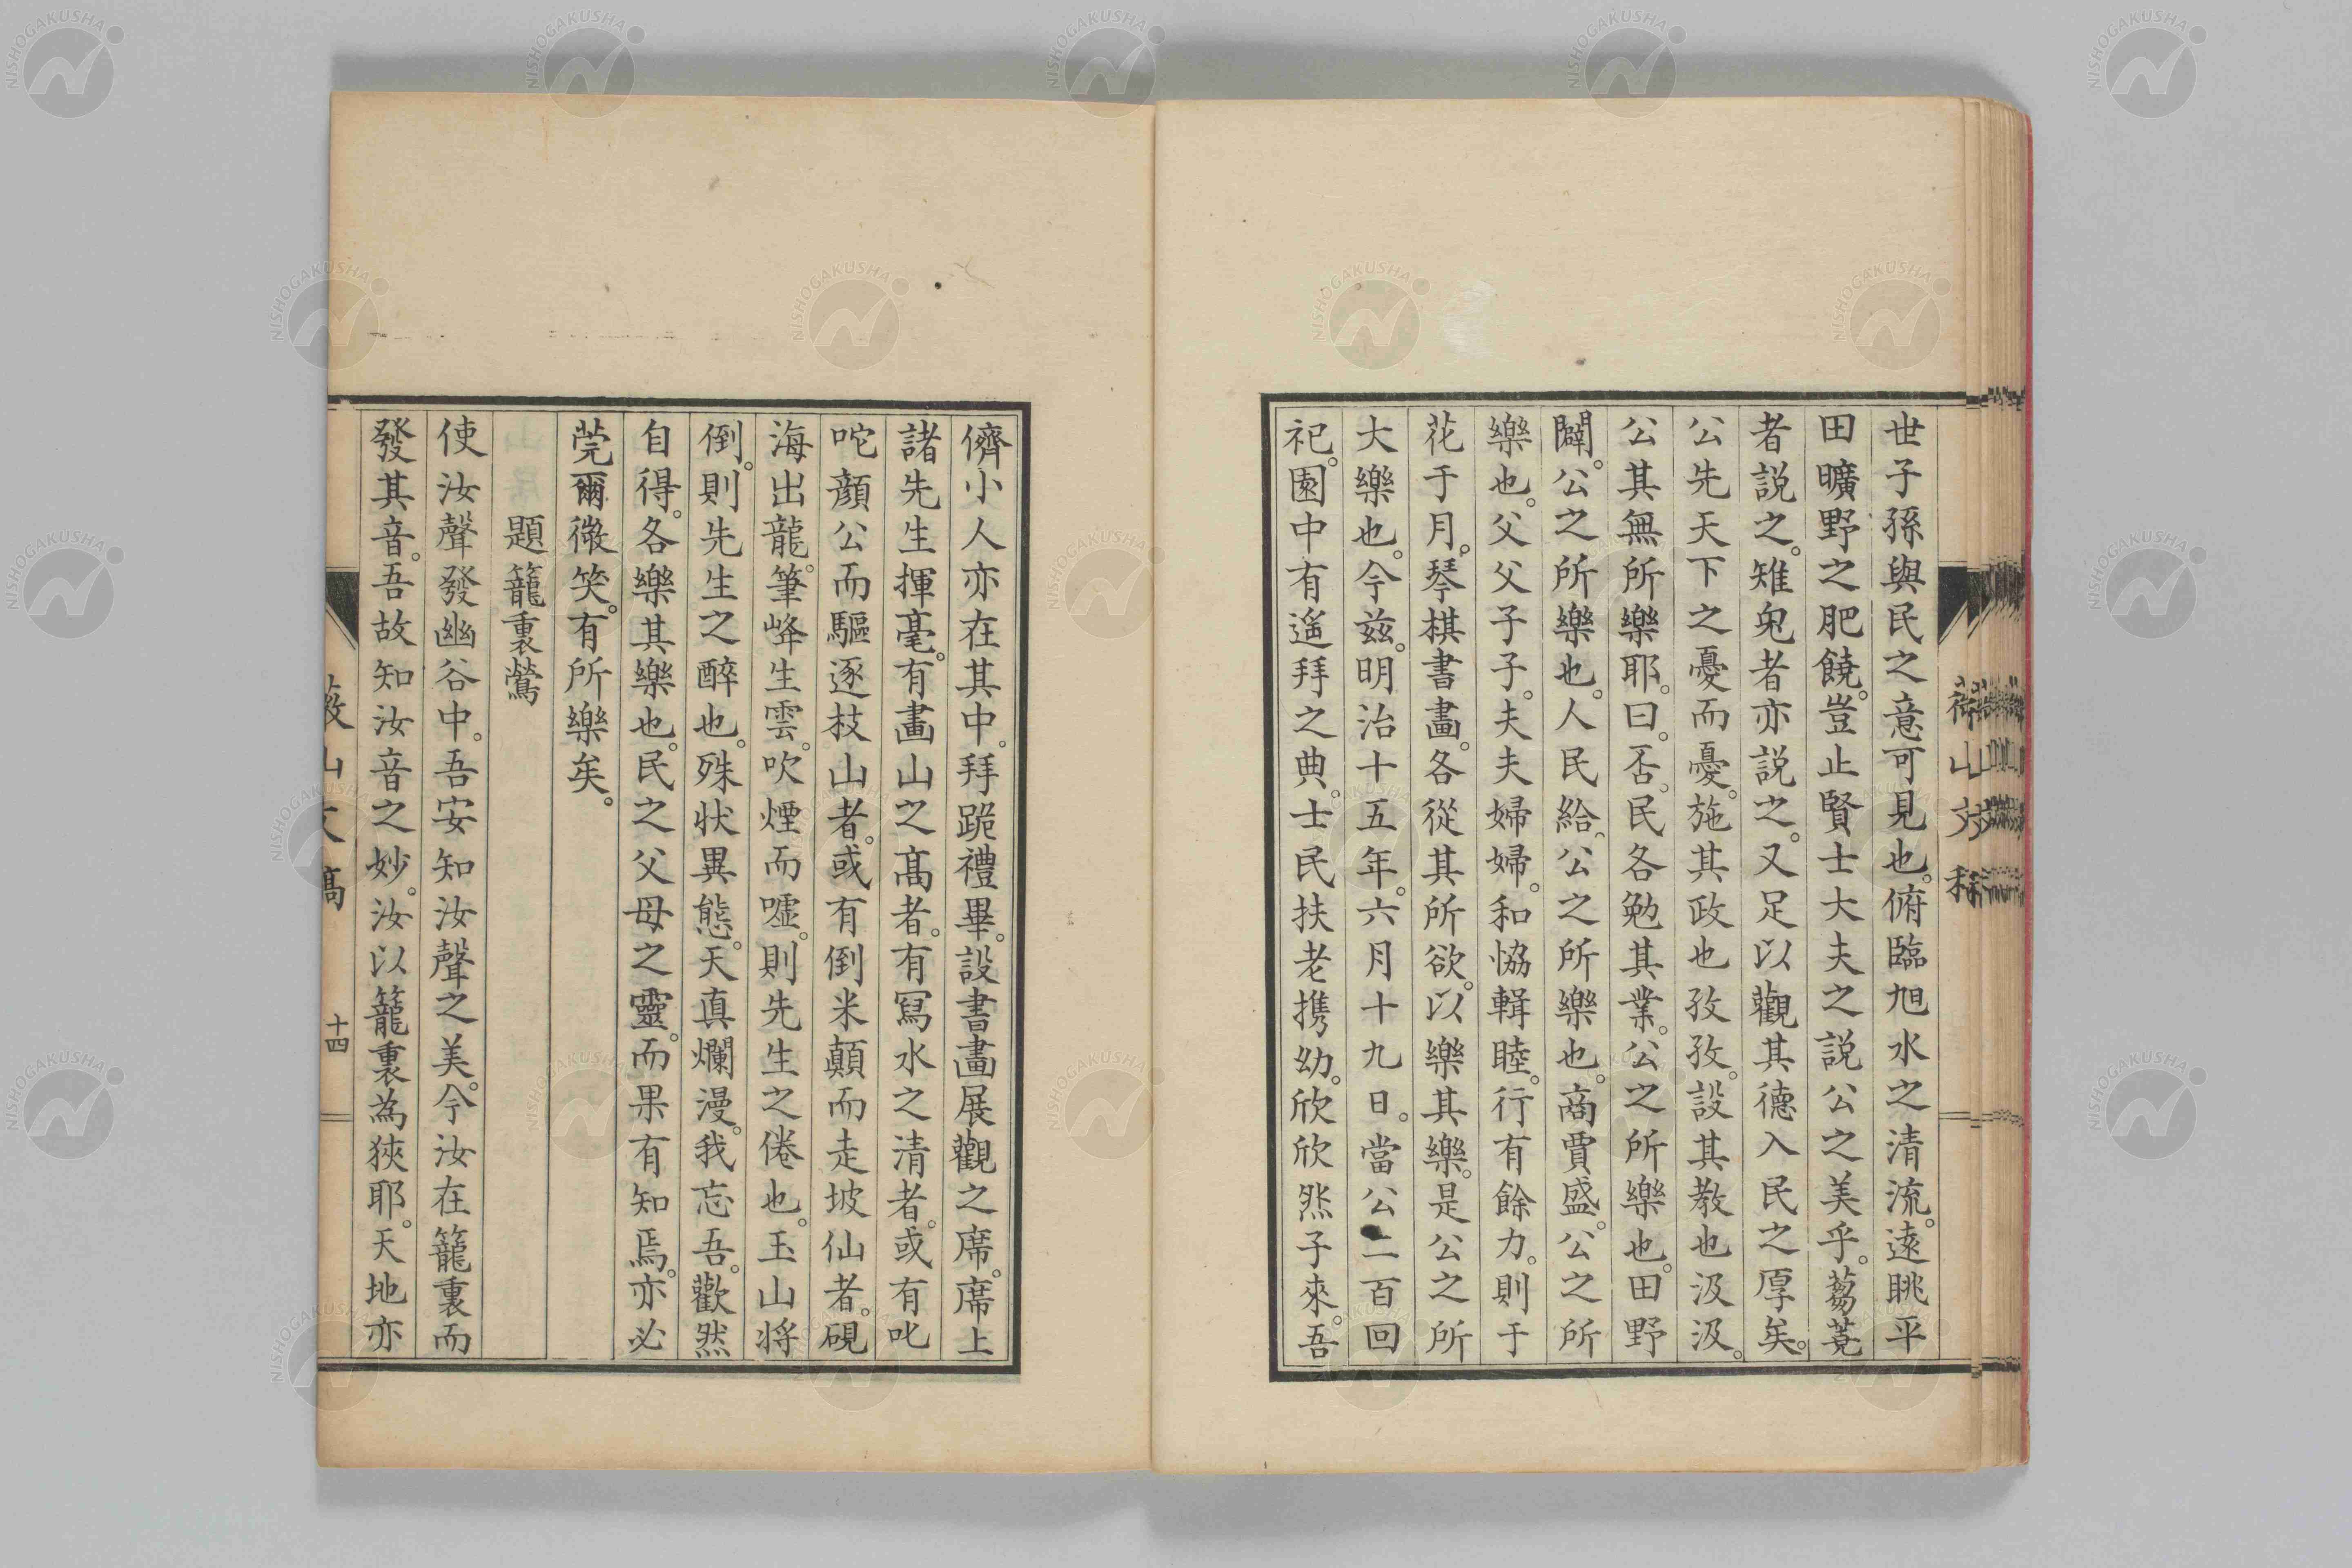 世子孫與民之意可見也。俯臨旭水之清流。遠眺平
田曠野之肥饒。豈止賢士大夫之説公之美乎。蒭蕘
者説之。雉兔者亦説之。又足以觀其德入民之厚矣。
公先天下之憂而憂。施其政也孜孜。設其教也汲汲。
公其無所樂耶。曰。否。民各勉其業。公之所樂也。田野
闢。公之所樂也。人民給。公之所樂也。商賈盛。公之所
樂也。父父子子。夫夫婦婦。和協輯睦。行有餘力。則于
花于月。琴棋書畫。各從其所欲。以樂其樂。是公之所
大樂也。今茲。明治十五年。六月十九日。當公二百回
祀。園中有遙拜之典。士民扶老携幼。欣欣然子來。吾
儕小人亦在其中。拜跪禮畢。設書畫展觀之席。席上
諸先生揮毫。有畫山之高者。有寫水之清者。或有叱
咤顔公而驅逐枝山者。或有倒米顛而走坡仙者。硯
海出龍。筆峰生雲。吹煙而噓。則先生之倦也。玉山将
倒。則先生之醉也。殊状異態。天真爛漫。我忘吾。歡然
自得。各樂其樂也。民之父母之靈。而果有知焉。亦必
莞爾微笑。有所樂矣。
題籠裏鶯
使汝聲發幽谷中。吾安知汝聲之美。今汝在籠裏而
發其音。吾故知汝音之妙。汝以籠裏為狹耶。天地亦
山文稿
十四
NISHOGAKUSHA